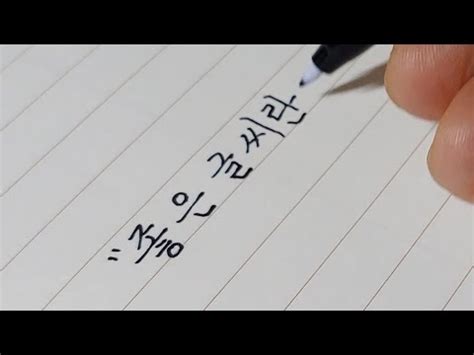 "좋은 글씨란